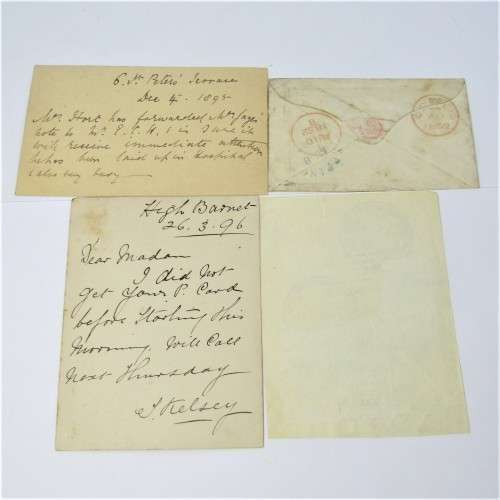 6. St Peters' Terrace
Dec 4. 1895
Mrs Hort has forwarded Mrs
note to Mr P. F. H. & is sure it
will receive immediate attention
he has been laid up in Hospital
& also very busy —
High Barnet
26.3.96
Dear Madam
I did not
get your P. Card
before starting this
Morning. Will Call
next Thursday
S. Kelsey